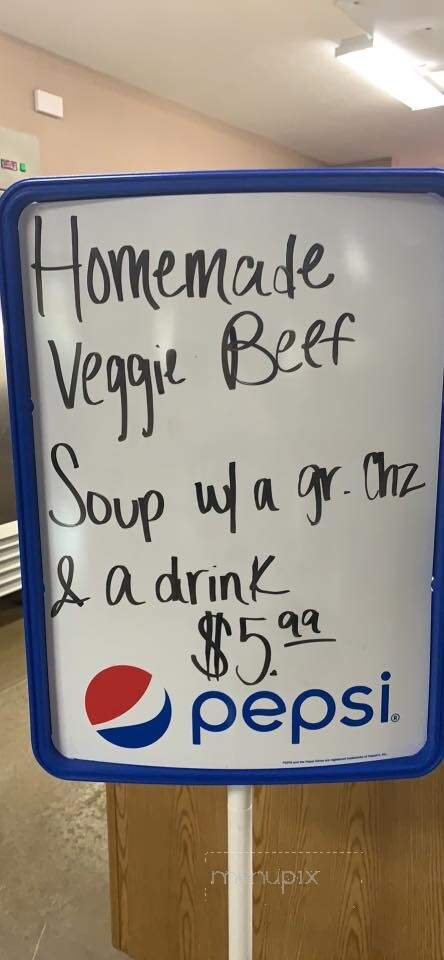 Homemade
Veggie Beef
Soup w/ a gr. Chz
& a drink
$5.99
pepsi®
menupix